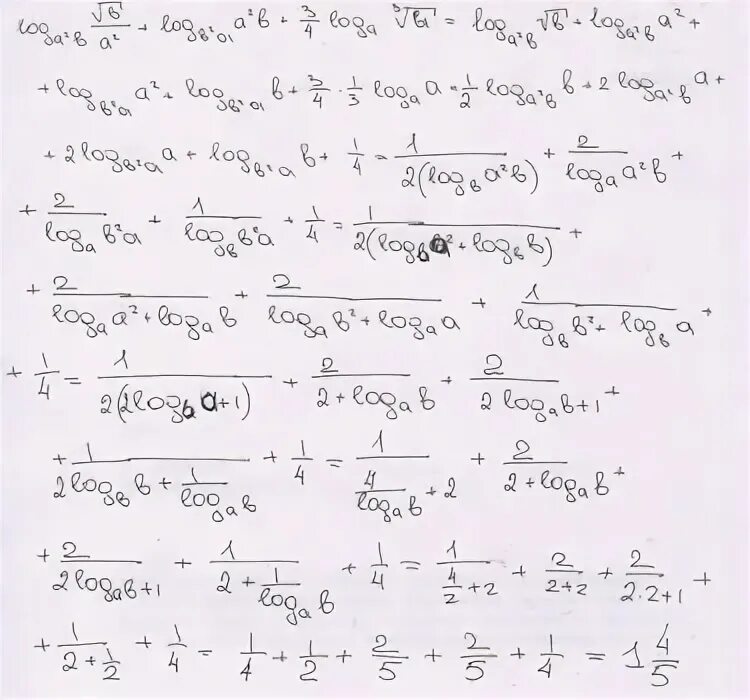 log_{a²b} √b/a² + log_{b²a} a²b + 3/4 log_a ∛a = log_{a²b} √b + log_{a²b} a² +
+ log_{b²a} a² + log_{b²a} b + 3/4 · 1/3 log_a a = 1/2 log_{a²b} b + 2 log_{a²b} a +
+ 2 log_{b²a} a + log_{b²a} b + 1/4 = 1/(2(log_b a²b)) + 2/(log_a a²b) +
+ 2/(log_a b²a) + 1/(log_b b²a) + 1/4 = 1/(2(log_b a² + log_b b)) +
+ 2/(log_a a² + log_a b) + 2/(log_a b² + log_a a) + 1/(log_b b² + log_b a) +
+ 1/4 = 1/(2(2log_b a + 1)) + 2/(2 + log_a b) + 2/(2 log_a b + 1) +
+ 1/(2log_b b + 1/(log_a b)) + 1/4 = 1/(4/(log_a b) + 2) + 2/(2 + log_a b) +
+ 2/(2log_a b + 1) + 1/(2 + 1/(log_a b)) + 1/4 = 1/(4/2 + 2) + 2/(2+2) + 2/(2·2+1) +
+ 1/(2 + 1/2) + 1/4 = 1/4 + 1/2 + 2/5 + 2/5 + 1/4 = 1 4/5